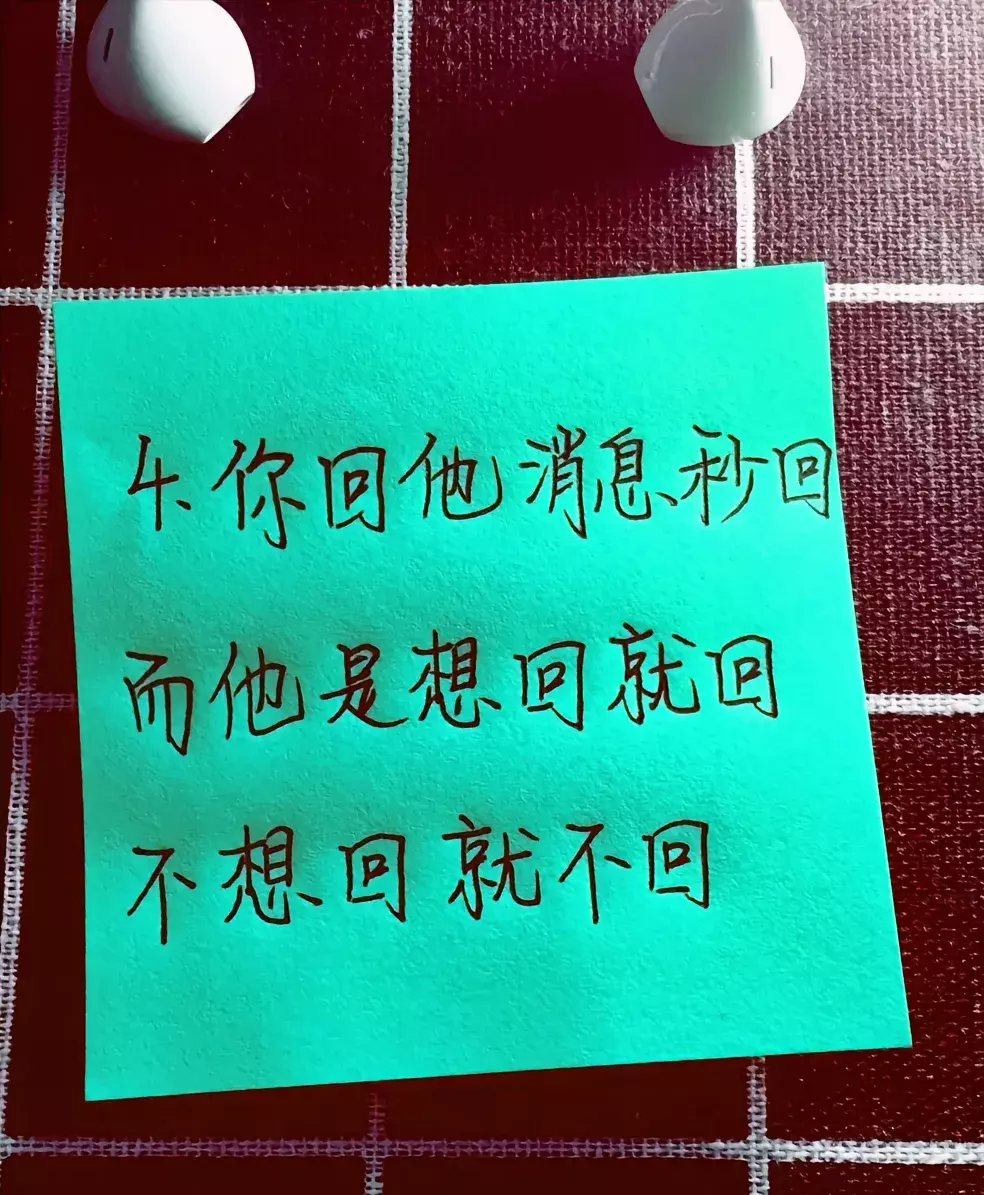 4、你回他消息秒回
而他是想回就回
不想回就不回